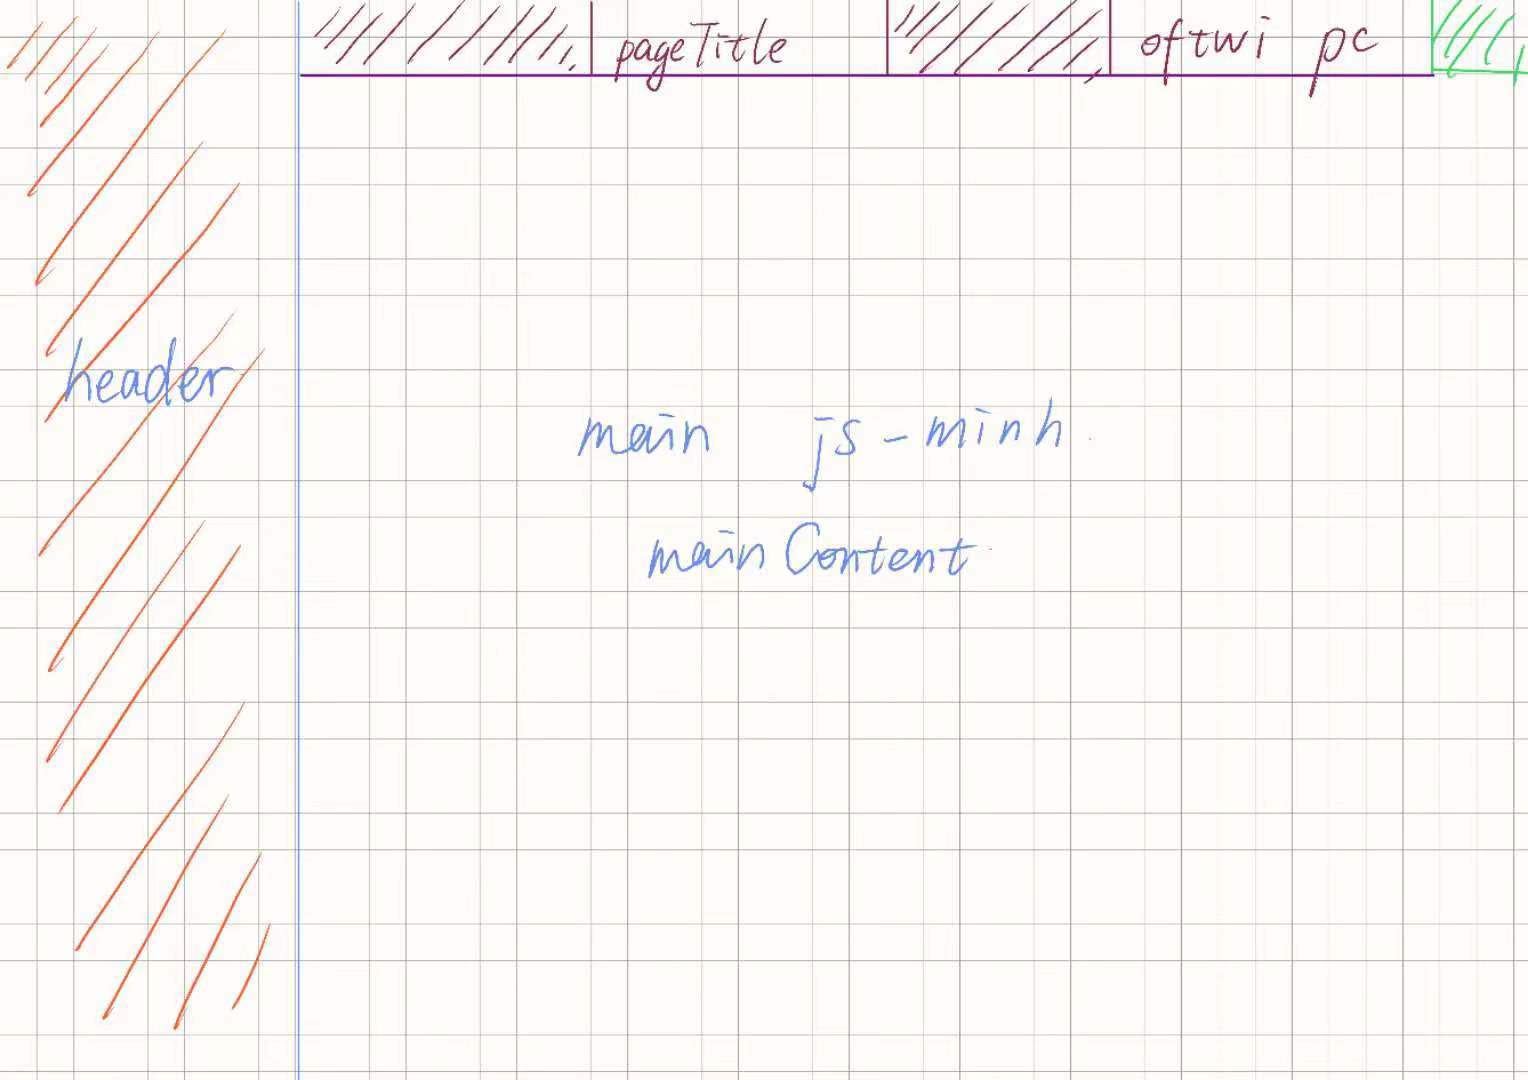 pageTitle
oftwi pc
header
main js-minh
mainContent